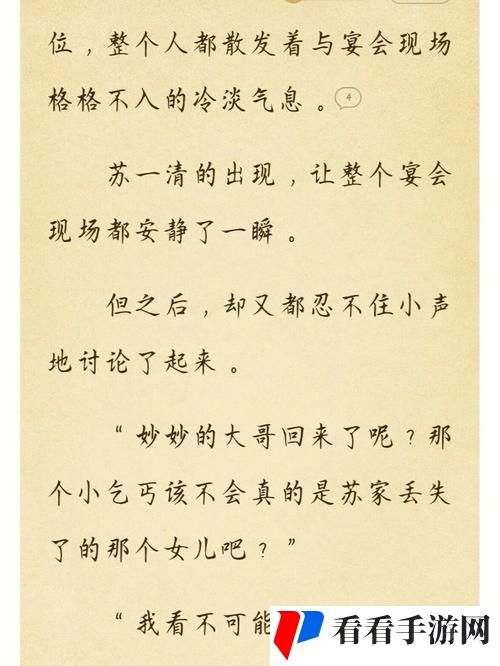 位，整个人都散发着与宴会现场
格格不入的冷淡气息。4
苏一清的出现，让整个宴会
现场都安静了一瞬。
但之后，却又都忍不住小声
地讨论了起来。
“妙妙的大哥回来了呢？那
个小乞丐该不会真的是苏家丢失
了的那个女儿吧？”
“我看不可能
看看手游网